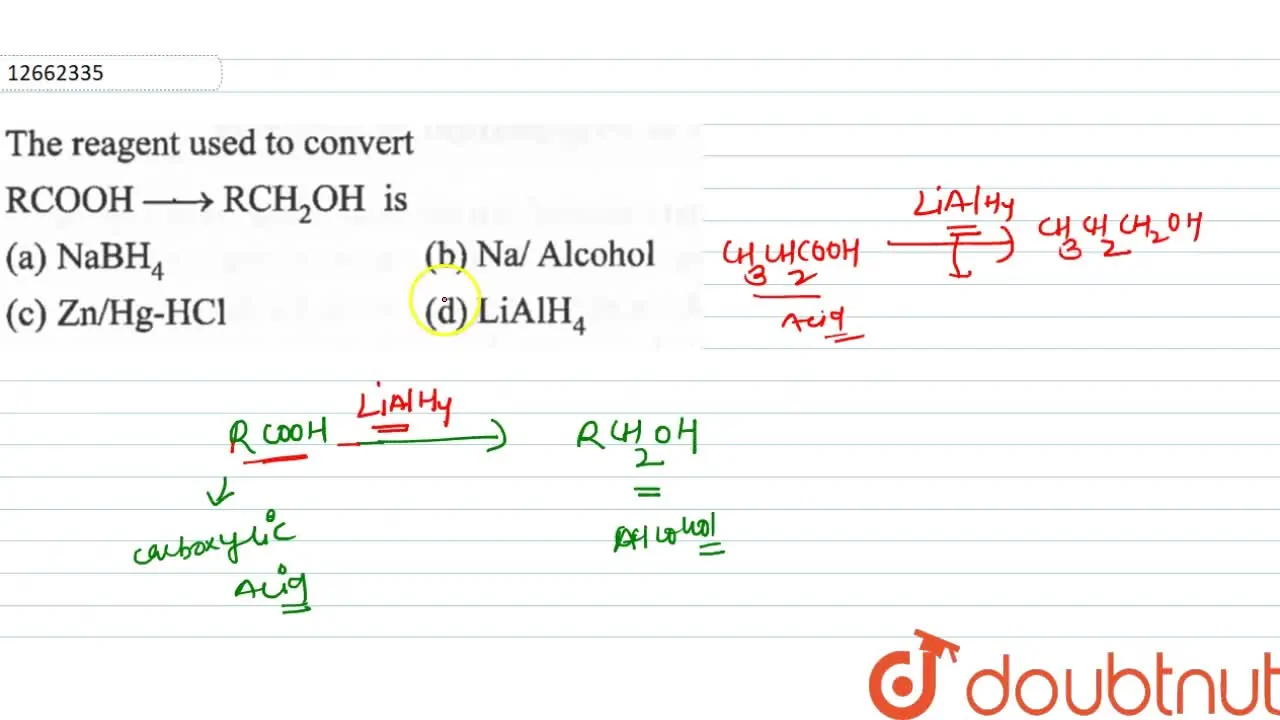 12662335
The reagent used to convert
RCOOH ⟶ RCH₂OH is
(a) NaBH₄ (b) Na/ Alcohol
(c) Zn/Hg-HCl (d) LiAlH₄
LiAlH4
CH3CH2COOH ⟶ CH3CH2CH2OH
Acid
LiAlH4
RCOOH ⟶ RCH2OH
carboxylic
Acid
Alcohol
doubtnut